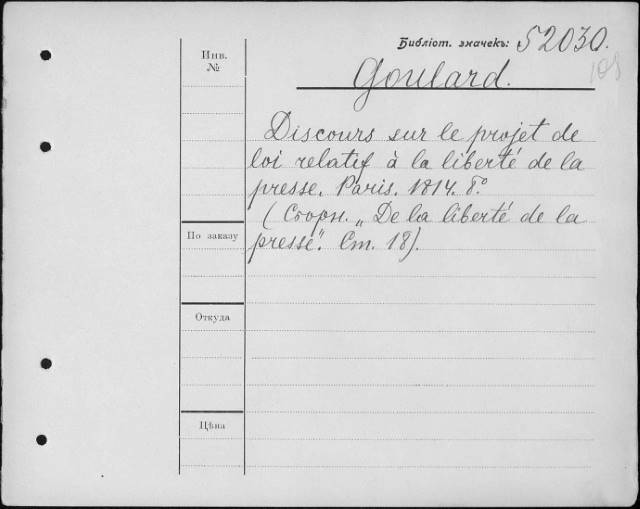 Библіот. значекъ: 52030.
109
Инв.
№
Goulard.
Discours sur le projet de
loi relatif à la liberté de la
presse. Paris. 1814. 8º
(Сборн. „De la liberté de la
presse". Ст. 18).
По заказу
Откуда
Цѣна